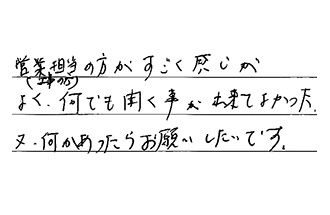 営業担当の方がすごく感じが
(工事の方)
よく、何でも聞く事が出来てよかった。
又、何かあったらお願いしたいです。